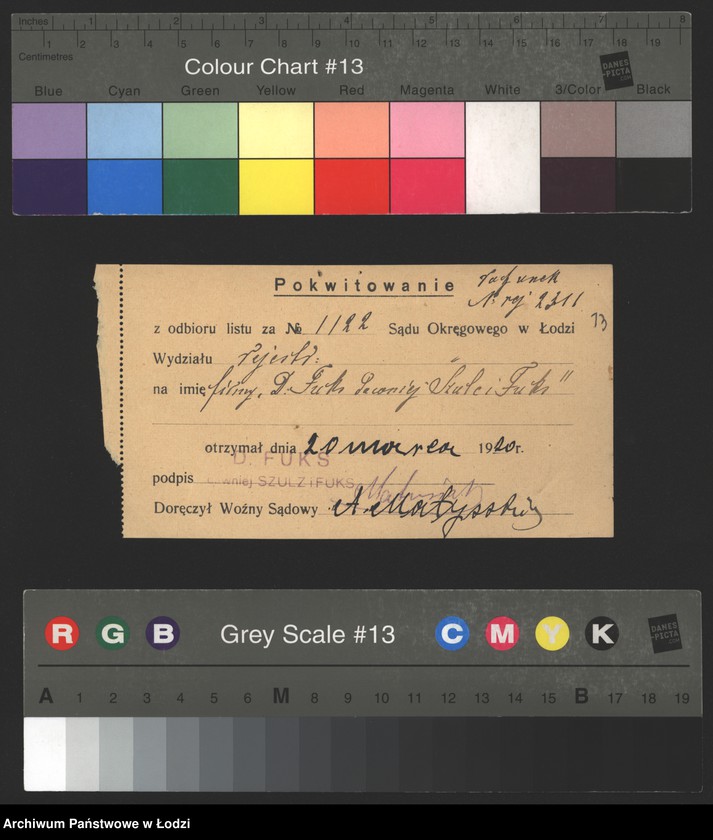 Inches 1 2 3 4 5 6 7 8
1 2 3 4 5 6 7 8 9 10 11 12 13 14 15 16 17 18 19
Centimetres
Colour Chart #13
DANES
-PICTA
.COM
Blue Cyan Green Yellow Red Magenta White 3/Color Black
Pokwitowanie
N. rej 2311
13
z odbioru listu za № 1122 Sądu Okręgowego w Łodzi
Wydziału rejestr.
na imię firmy „D. Fuks dawniej Szulc i Fuks"
otrzymał dnia 20 marca 1920r.
D. FUKS
podpis
dawniej SZULZ i FUKS
Doręczył Woźny Sądowy A. Małysski
R G B Grey Scale #13 C M Y K
DANES
-PICTA
.COM
A 1 2 3 4 5 6 M 8 9 10 11 12 13 14 15 B 17 18 19
Archiwum Państwowe w Łodzi